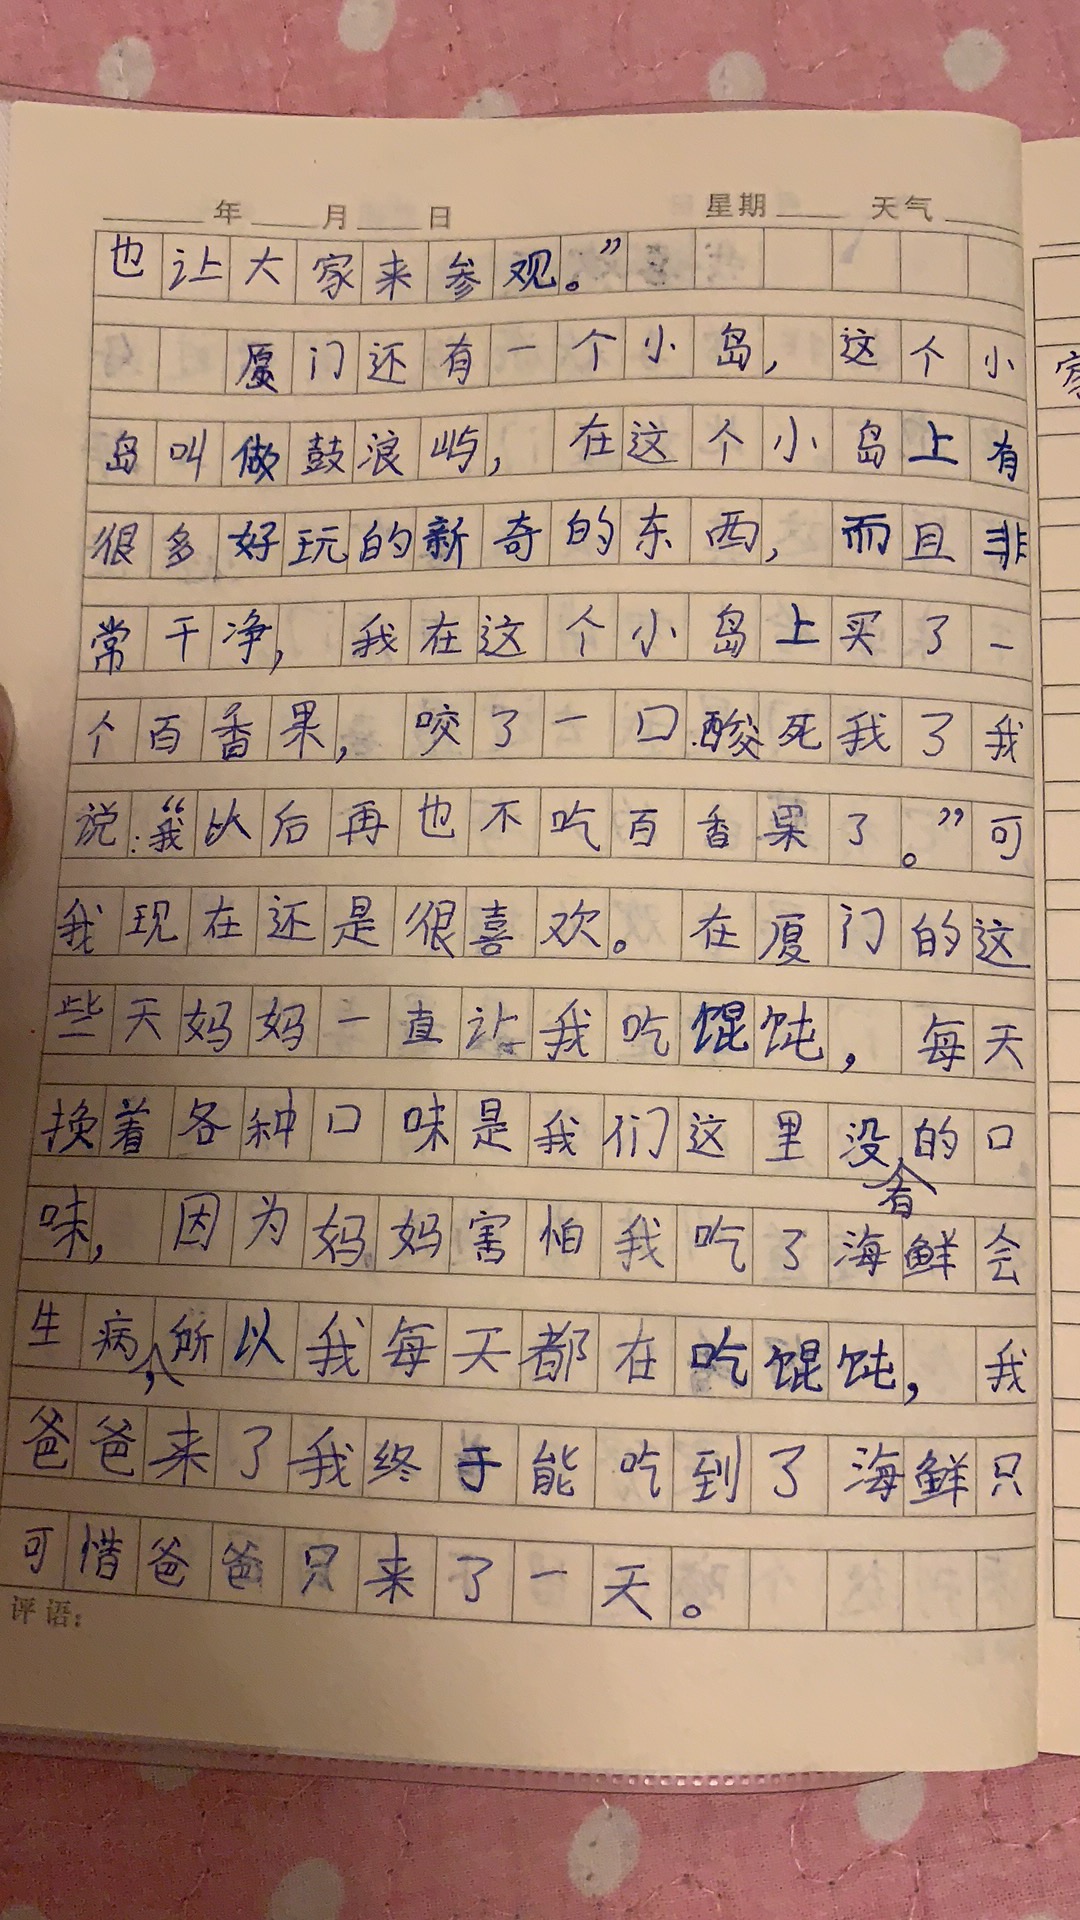 年 月 日 星期 天气
也让大家来参观。”
厦门还有一个小岛，这个小
岛叫做鼓浪屿，在这个小岛上有
很多好玩的新奇的东西，而且非
常干净，我在这个小岛上买了一
个百香果，咬了一口酸死我了我
说：“我以后再也不吃百香果了。”可
我现在还是很喜欢。在厦门的这
些天妈妈一直让我吃馄饨，每天
换着各种口味是我们这里没有的口
味，因为妈妈害怕我吃了海鲜会
生病，所以我每天都在吃馄饨，我
爸爸来了我终于能吃到了海鲜只
可惜爸爸只来了一天。
评语：